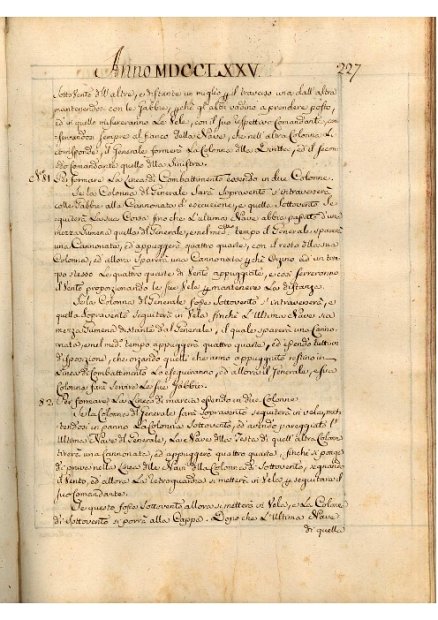 Anno MDCCLXXV.
227
Sottovento dell'altre, e distante un miglio p il traverso una dall'altra
mantenendosi con le Gabbie, p chè gl'altri vadino a prendere posto,
ed in quelle misureranno Le Vele, con il suo rispettivo Comandante, con-
sempre al fianco della Nave, che nell'altra Colonna Li
corrisponde; il Generale formerà La Colonna della Diritta, ed il secon-
do Comandante quella della Sinistra.
N.° 81. Per formare La Linea di Combattimento essendo in due Colonne.
Se La Colonna del Generale sarà Sopravento s'intraverserà
colle Gabbie alla Cannonata d'esecuzione, e quella Sottovento Se-
guiterà La sua Corsa fino che L'ultima Nave abbia passato d'una
mezza Gumena quella del Generale, e nel med.mo tempo il Generale sparerà
una Cannonata, ed appuggerà quattro quarte, con il resto della sua
Colonna, ed allora Sparerà una Cannonata p chè Orzino ad un tem-
po stesso Le quattro quarte di Vento appuggiate, e così serreranno
il Vento proporzionando le sue Vele p mantenere La distanza.
Se La Colonna del Generale fosse Sottovento s'intraverserà, e
quella Sopravento Seguiterà in Vela finchè L'ultima Nave sia
mezza Gumena distante dal Generale, il quale sparerà una Canno-
nata, e nel med.° tempo appuggerà quattro quarte, ed essendo tutti in
disposizione, che orzando quelle che anno appuggiato restino in
Linea di Combattimento Lo eseguiranno, ed allora il Generale, e sua
Colonna farà Servire Le sue Gabbie.
82. Per formare La Linea di marcia essendo in due Colonne.
Se La Colonna del Generale sarà Sopravento seguiterà in vela, met-
tendosi in panno La Colonna Sottovento, ed avendo pareggiato L'
Ultima Nave del Generale, La Nave della testa di quell'altra Colonna
tirerà una Cannonata, ed appuggerà quattro quarte, finchè si ponga
di prue nella Linea delle Navi della Colonna di Sottovento, seguirà
il Vento, ed allora La Retroguardia si metterà in Vela p seguitare il
suo Comandante.
Se questo fosse Sottovento allora si metterà in Vela, e La Colonna
di Sottovento si porrà alla Cappa. Dopo che L'Ultima Nave
di quella